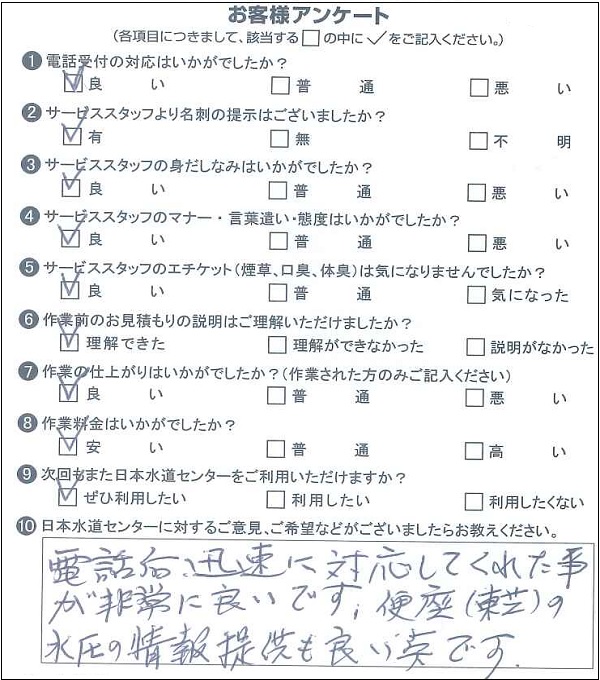 お客様アンケート
(各項目につきまして、該当する□の中に✓をご記入ください。)
1 電話受付の対応はいかがでしたか?
☑良い □普通 □悪い
2 サービススタッフより名刺の提示はございましたか?
☑有 □無 □不明
3 サービススタッフの身だしなみはいかがでしたか?
☑良い □普通 □悪い
4 サービススタッフのマナー・言葉遣い・態度はいかがでしたか?
☑良い □普通 □悪い
5 サービススタッフのエチケット(煙草、口臭、体臭)は気になりませんでしたか?
☑良い □普通 □気になった
6 作業前のお見積もりの説明はご理解いただけましたか?
☑理解できた □理解ができなかった □説明がなかった
7 作業の仕上がりはいかがでしたか?(作業された方のみご記入ください)
☑良い □普通 □悪い
8 作業料金はいかがでしたか?
☑安い □普通 □高い
9 次回もまた日本水道センターをご利用いただけますか?
☑ぜひ利用したい □利用したい □利用したくない
10 日本水道センターに対するご意見、ご希望などがございましたらお教えください。
電話后、迅速に対応してくれた事
が非常に良いです; 便座(東芝)の
水圧の情報提供も良い点です.